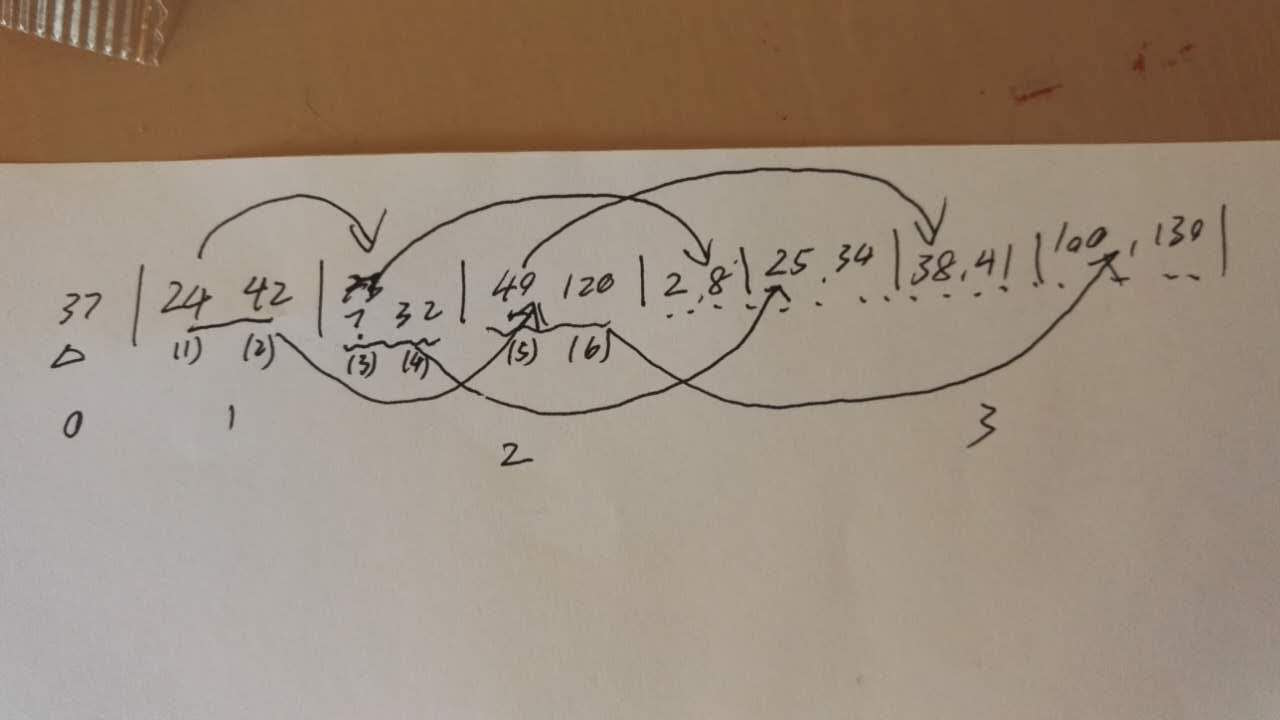 37 | 24 42 | 7 32 | 40 120 | 2,8 | 25,34 | 38,41 | 100,130 |
Δ (1) (2) (3) (4) (5) (6)
0 1 2 3